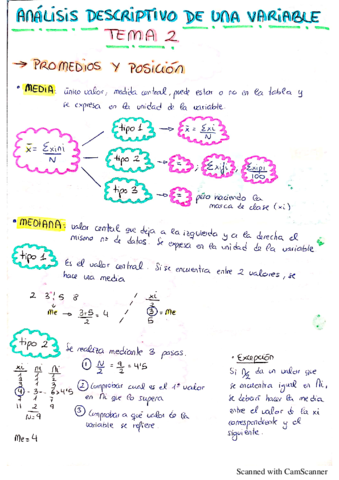 ANÁLISIS DESCRIPTIVO DE UNA VARIABLE
TEMA 2
→ PROMEDIOS Y POSICIÓN
• MEDIA: único valor, medida central, puede estar o no en la tabla y
se expresa en la unidad de la variable.
x̄ = Σxini / N
tipo 1 → x̄ = Σxi / N
tipo 2 → = ; Σxifi ; Σxipi / 100
tipo 3 → = pero haciendo la
marca de clase (xi)
• MEDIANA: valor central que deja a la izquierda y a la derecha el
mismo nº de datos. Se expresa en la unidad de la variable
tipo 1
Es el valor central. Si se encuentra entre 2 valores, se
hace una media
2 3 5 8
Me → 3+5 / 2 = 4
xi
2
3 = Me
5
tipo 2
Se realiza mediante 3 pasos.
① N/2 = 9/2 = 4'5
② Comprobar cual es el 1er valor
en Ni que lo supera
③ Comprobar a qué valor de la
variable se refiere
xi ni Ni
4 - 3 - 4'5
11 2 9
N=9
Me = 4
• Excepción
Si N/2 da un valor que
se encuentra igual en Ni,
se deberá hacer la media
entre el valor de la xi
correspondiente y el
siguiente.
Scanned with CamScanner